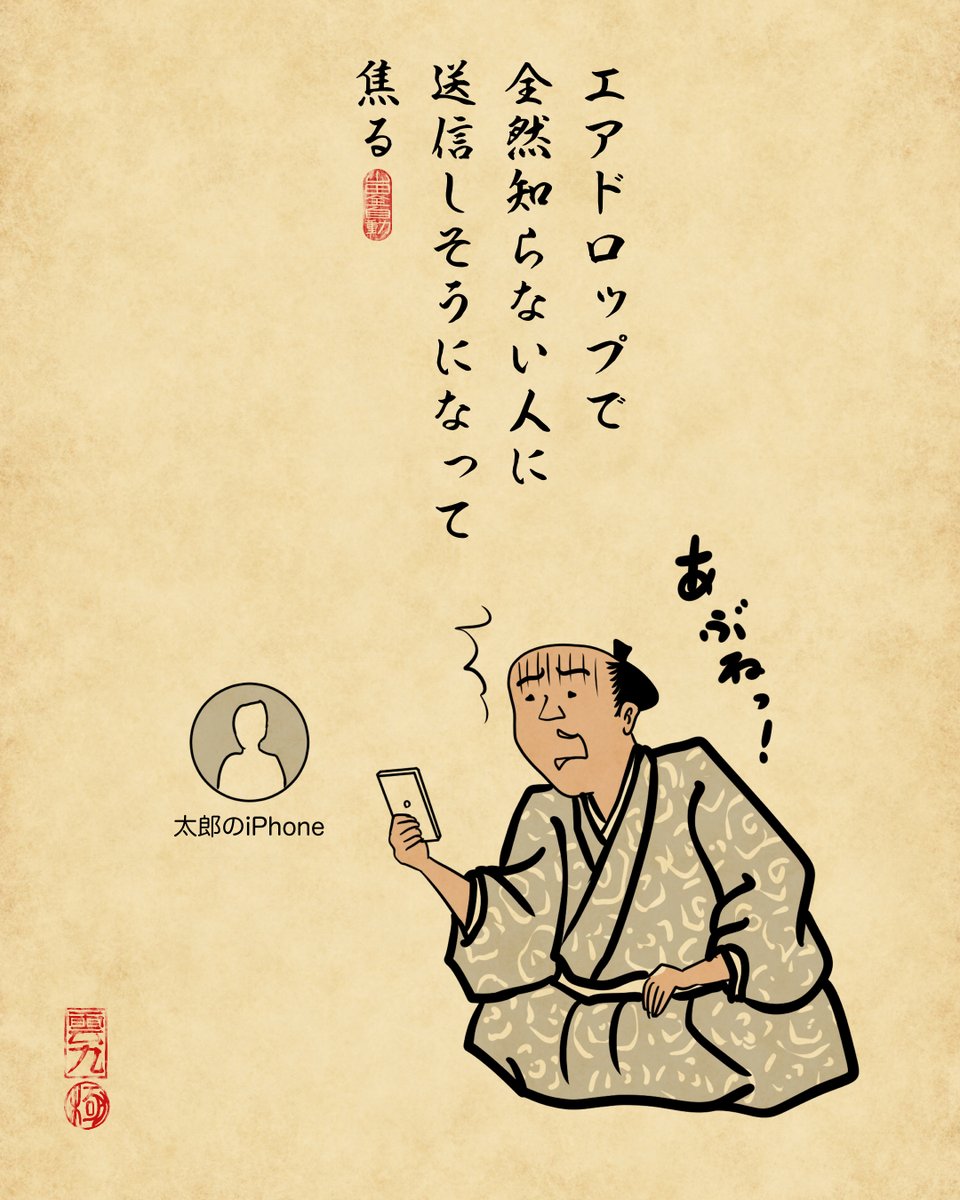 エアドロップで
全然知らない人に
送信しそうになって
焦る
あぶねっ!
太郎のiPhone
雲九
極